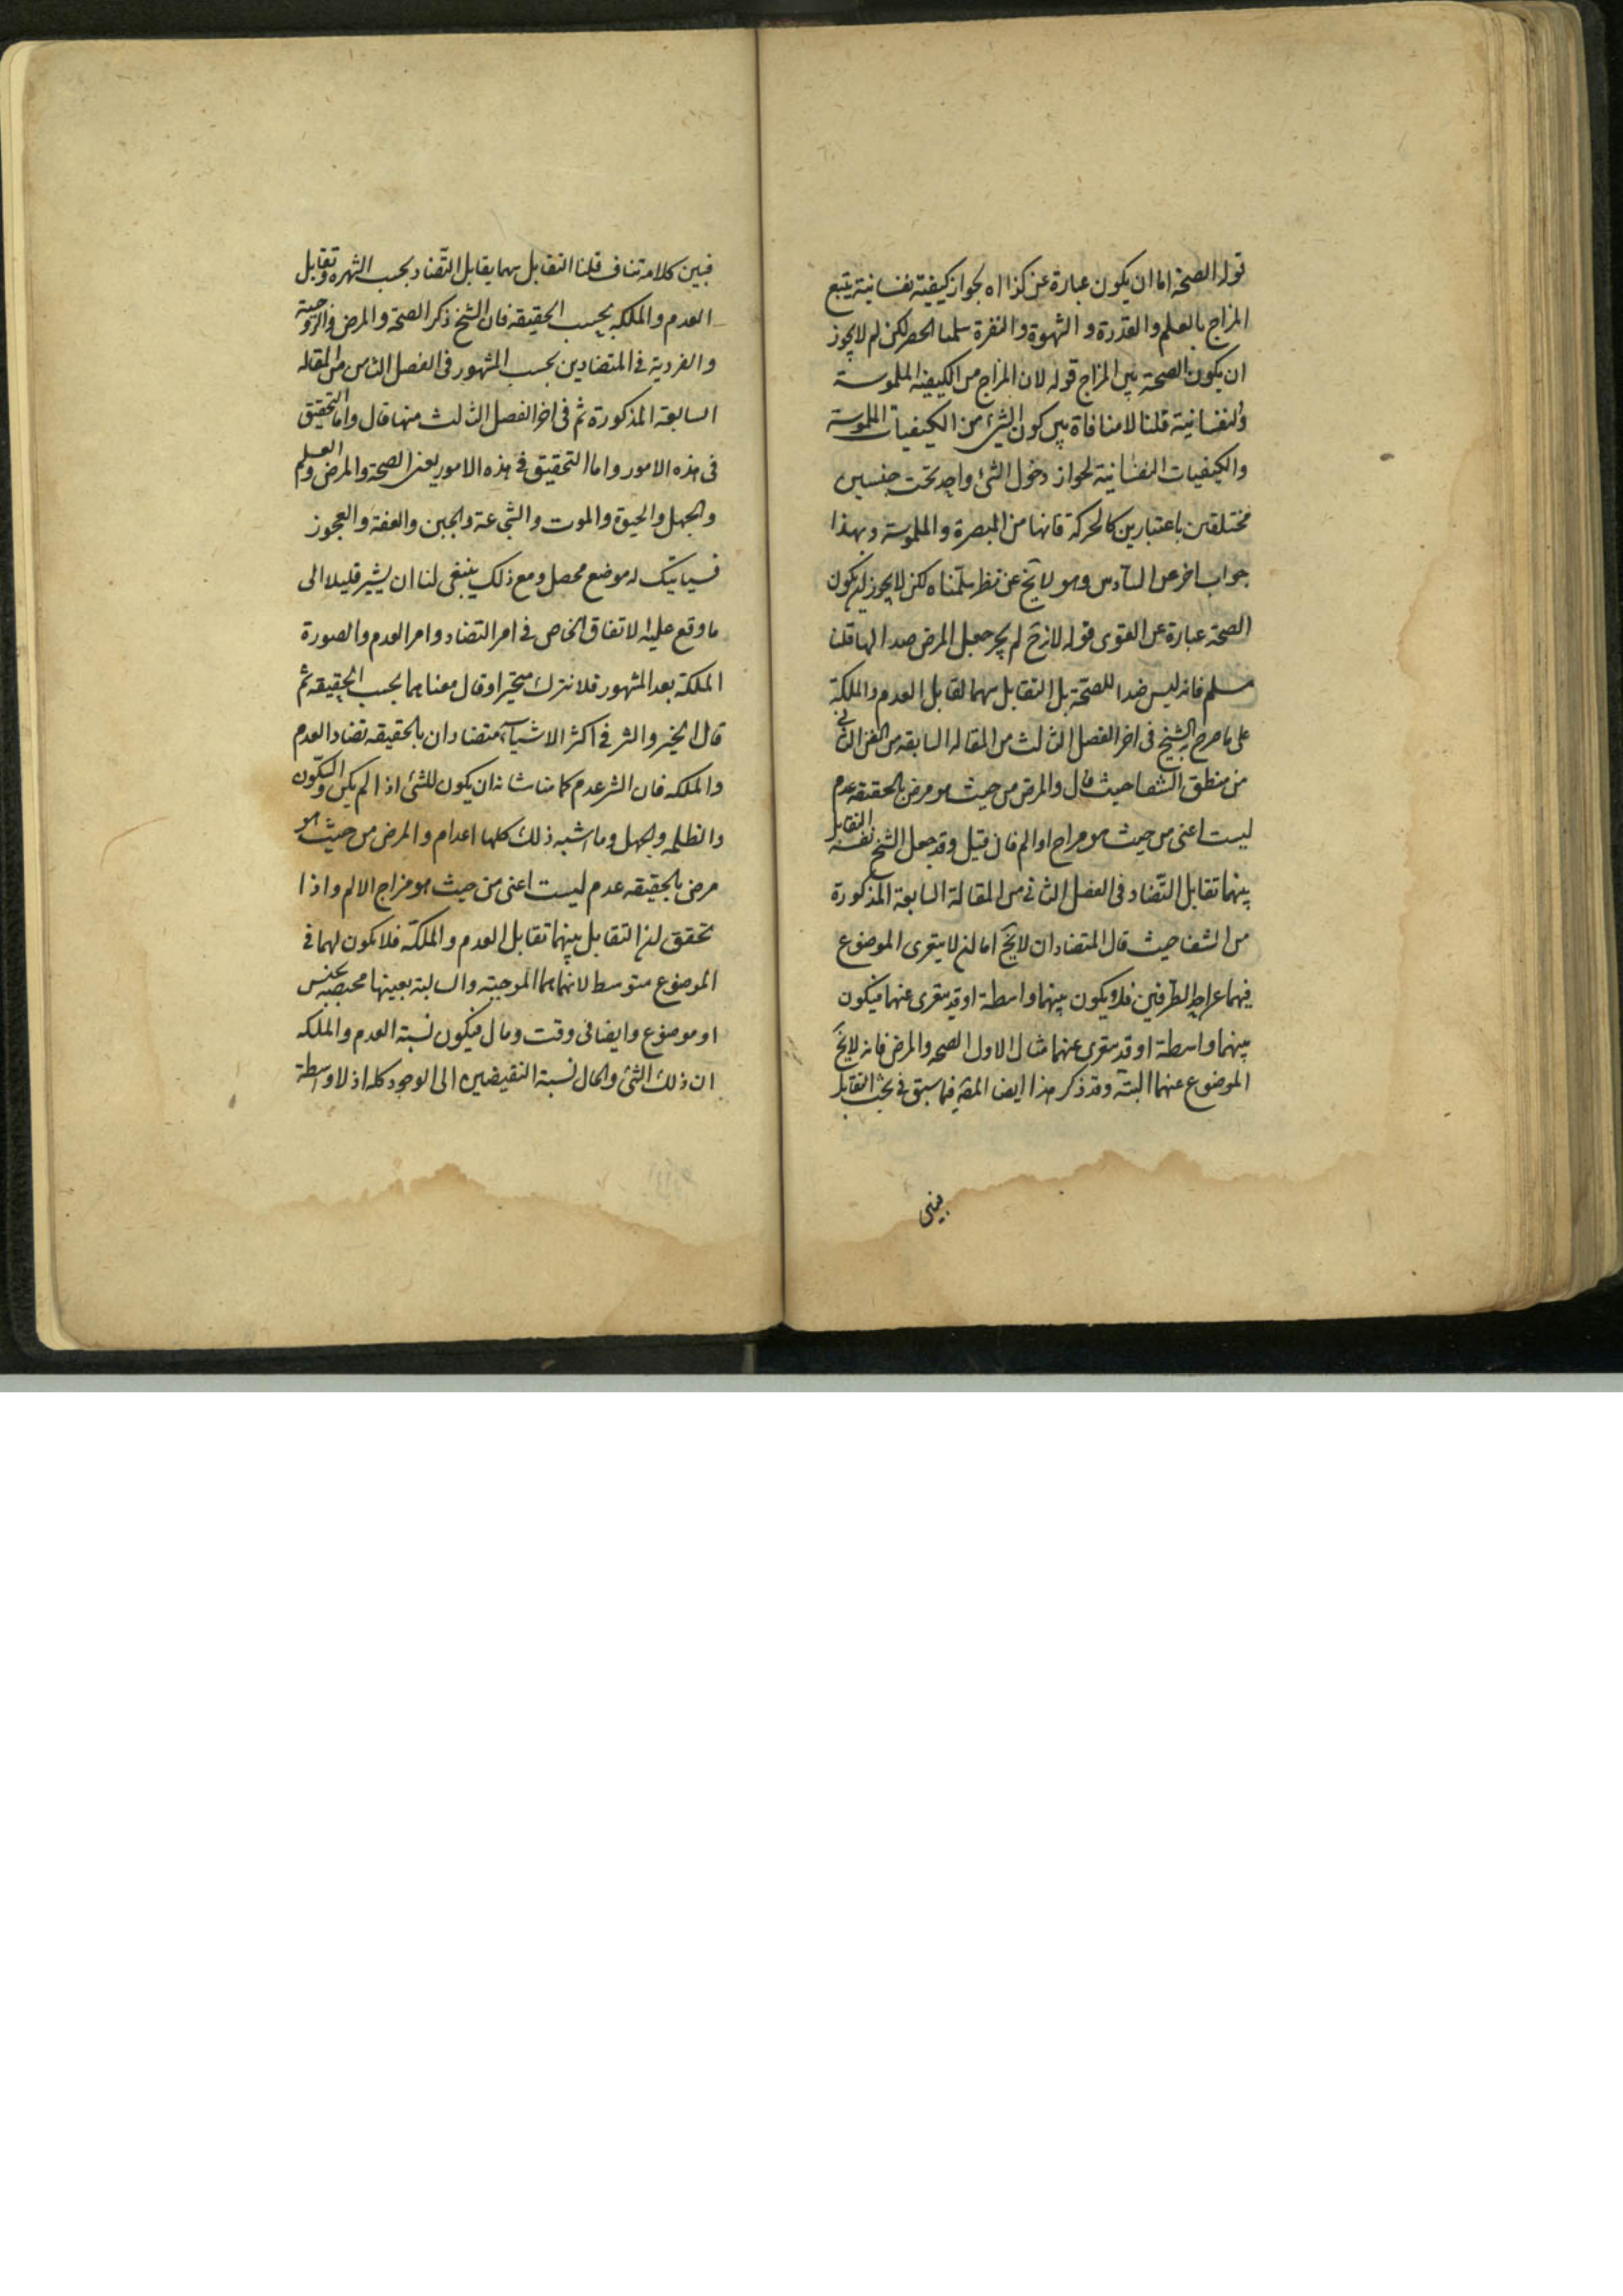 قوله الصحة اما ان يكون عبارة عن كذا اه لجواز كيفية نفسانية يتبع
المزاج بالعلم والقدرة و الشهوة والنفرة سلمنا الحصر لكن لم لا يجوز
ان يكون الصحة هى المزاج قوله لان المزاج من الكيفيه الملموسة
والنفسانية قلنا لا منافاة بين كون الشئ من الكيفيات الملموسة
والكيفيات النفسانية لجواز دخول الشئ واحد تحت جنسين
مختلفين باعتبارين كالحركة فانها من المبصرة والملموسة وبهذا
جواب اخر عن السادس وهو لا يخ عن نظر سلمناه لكن لا يجوز ان يكون
الصحة عبارة عن القوى قوله لان ح لم يجز جعل المرض ضدا لها قلنا
مسلم فانه ليس ضدا للصحة بل التقابل بينهما تقابل العدم والملكة
على ما صرح به الشيخ فى اخر الفصل الثالث من المقاله السابعه من الفن الثانى
من منطق الشفا حيث قال والمرض من حيث هو مرض بالحقيقه عدم
ليست اعنى من حيث هو مزاج او الم فان قيل وقد جعل الشيخ نفسه التقابل
بينهما تقابل التضاد فى الفصل الثانى من المقالة السابعة المذكورة
من الشفا حيث قال المتضادان لا يخ اما ان لا يتعرى الموضوع
فيهما عن احد الطرفين فلا يكون بينهما واسطة او قد يتعرى عنهما فيكون
بينهما واسطة او قد يتعرى عنهما مثال الاول الصحه والمرض فانه لا يخ
الموضوع عنهما البتة وقد ذكر هذا ايضا المص فيما سبق فى بحث التقابل
فبين
فبين كلامه تناف قلنا التقابل بينهما يقابل التضاد بحسب الشهره وتقابل
العدم والملكه بحسب الحقيقه فان الشيخ ذكر الصحة والمرض والزوجية
والفردية فى المتضادين بحسب المشهور فى الفصل الثامن من المقاله
السابعه المذكورة ثم فى اخر الفصل الثالث منها قال واما التحقيق
فى هذه الامور واما التحقيق فى هذه الامور يعنى الصحة والمرض والعلم
والجهل والحيوة والموت والشجاعة والجبن والعفة والعجوز
فسياتيك له موضع محصل ومع ذلك ينبغى لنا ان يشير قليلا الى
ما وقع عليه الاتفاق الخاص فى امر التضاد وامر العدم والصورة
الملكة بعد المشهور فلا نترك متحيرا وقال معناهما بحسب الحقيقه ثم
قال الخير والشر فى اكثر الاشياء متضادان بالحقيقه تضاد العدم
والملكه فان الشر عدم كما من شانه ان يكون للشئ اذا لم يكن والسكون
والظلمه والجهل وما اشبه ذلك كلها اعدام والمرض من حيث هو
مرض بالحقيقه عدم ليست اعنى من حيث هو مزاج الالم واذا
تحقق ان التقابل بينهما تقابل العدم والملكة فلا يكون لهما فى
الموضوع متوسط لانهما هما الموجبة والسالبة بعينها مخصصه بجنس
او موضوع وايضا فى وقت وحال فيكون نسبة العدم والملكه
ان ذلك الشئ والحال نسبة النقيضين الى الوجود كله اذ لا واسطة